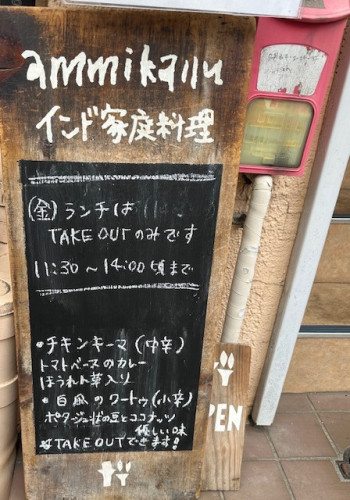 ammikallu
インド家庭料理
(金)ランチは
TAKE OUTのみです
11:30～14:00頃まで
・チキンキーマ(中辛)
トマトベースのカレー
ほうれん草入り
・白風のクートゥ(小辛)
ポタージュ状の豆とココナッツ
優しい味
TAKE OUTできます!
PEN